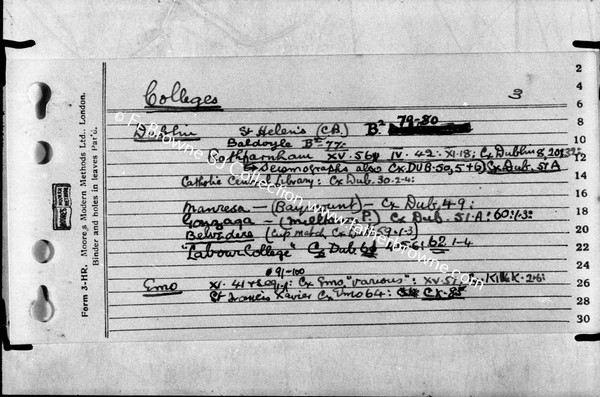 Colleges
3
Dublin St Helen's (C.B.) B² 79-80
Baldoyle B² 77.
Rathfarnham XV. 56 IV. 42. XI. 18; Cx Dublin 8, 20
Seismographs also Cx. DUB. 50, 5+6) Cx Dub. 57A
Catholic Central Library: Cx Dub. 30. 2-4:
Manresa - (Baymount) - Cx Dub. 4-9:
Gonzaga - (Milltown P.) Cx Dub. 51.A: 60:
Belvedere (Cup match, Cx Dub 59. 1-3)
"Labour College" Cx Dub 61 62 1-4
91-100
Emo XI. 41 Cx Emo, "various": XV. 51
St Francis Xavier Cx Emo 64: CX-85
2
4
6
8
10
12
14
16
18
20
22
24
26
28
30
Form 3-HR. Moore's Modern Methods Ltd., London.
Binder and holes in leaves Pat'd.
© Fr Browne Collection
www.fatherbrowne.com